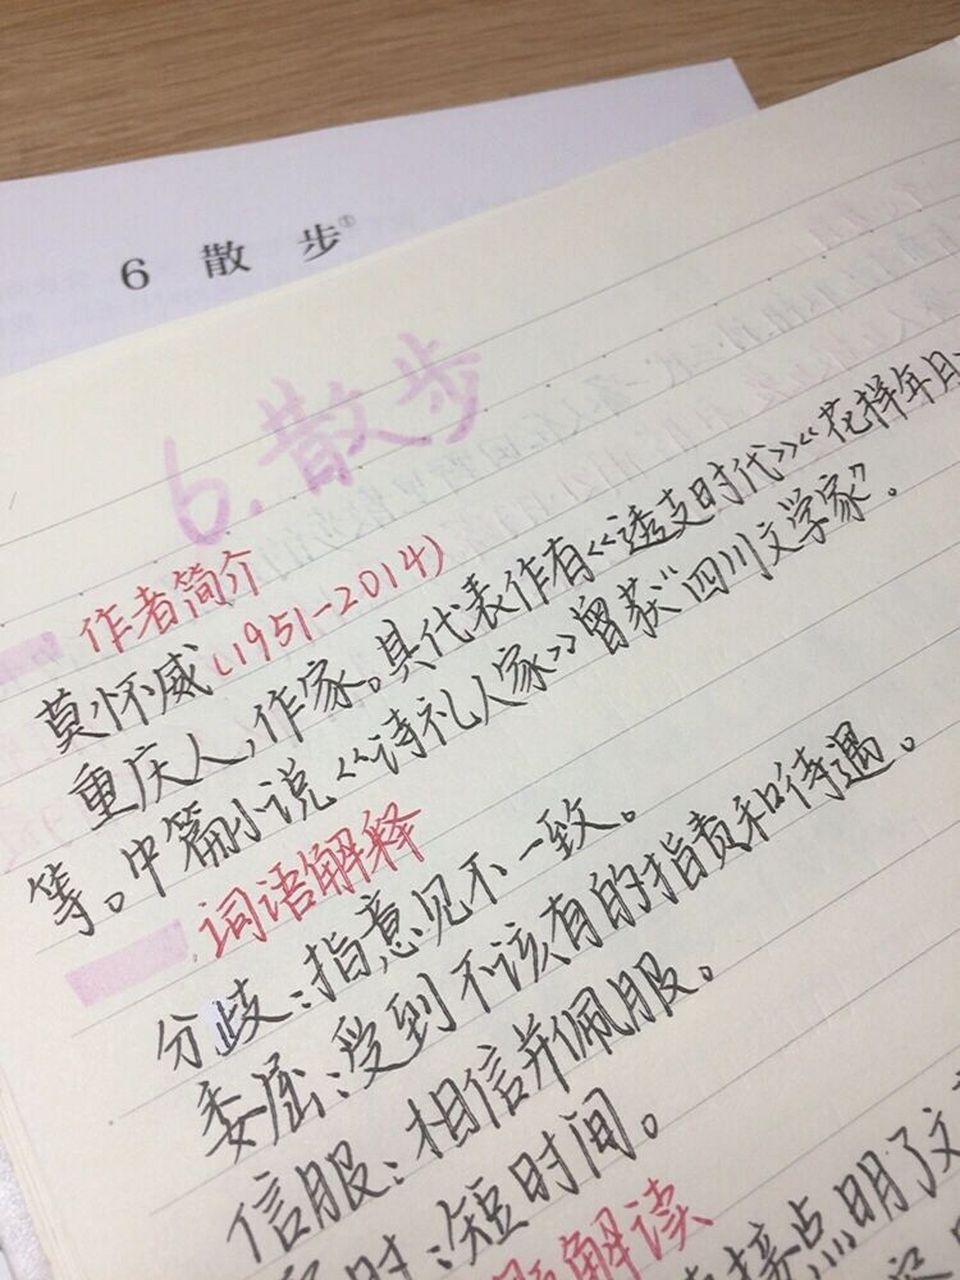 6 散 步①
6.散步
作者简介
莫怀威(1951-2014)
重庆人,作家。其代表作有《透支时代》《花样年月
等。中篇小说《诗礼人家》曾获“四川文学家”。
词语解释
分歧:指意见不一致。
委屈:受到不该有的指责和待遇。
信服:相信并佩服。
时:短时间。
解读
接点明了文